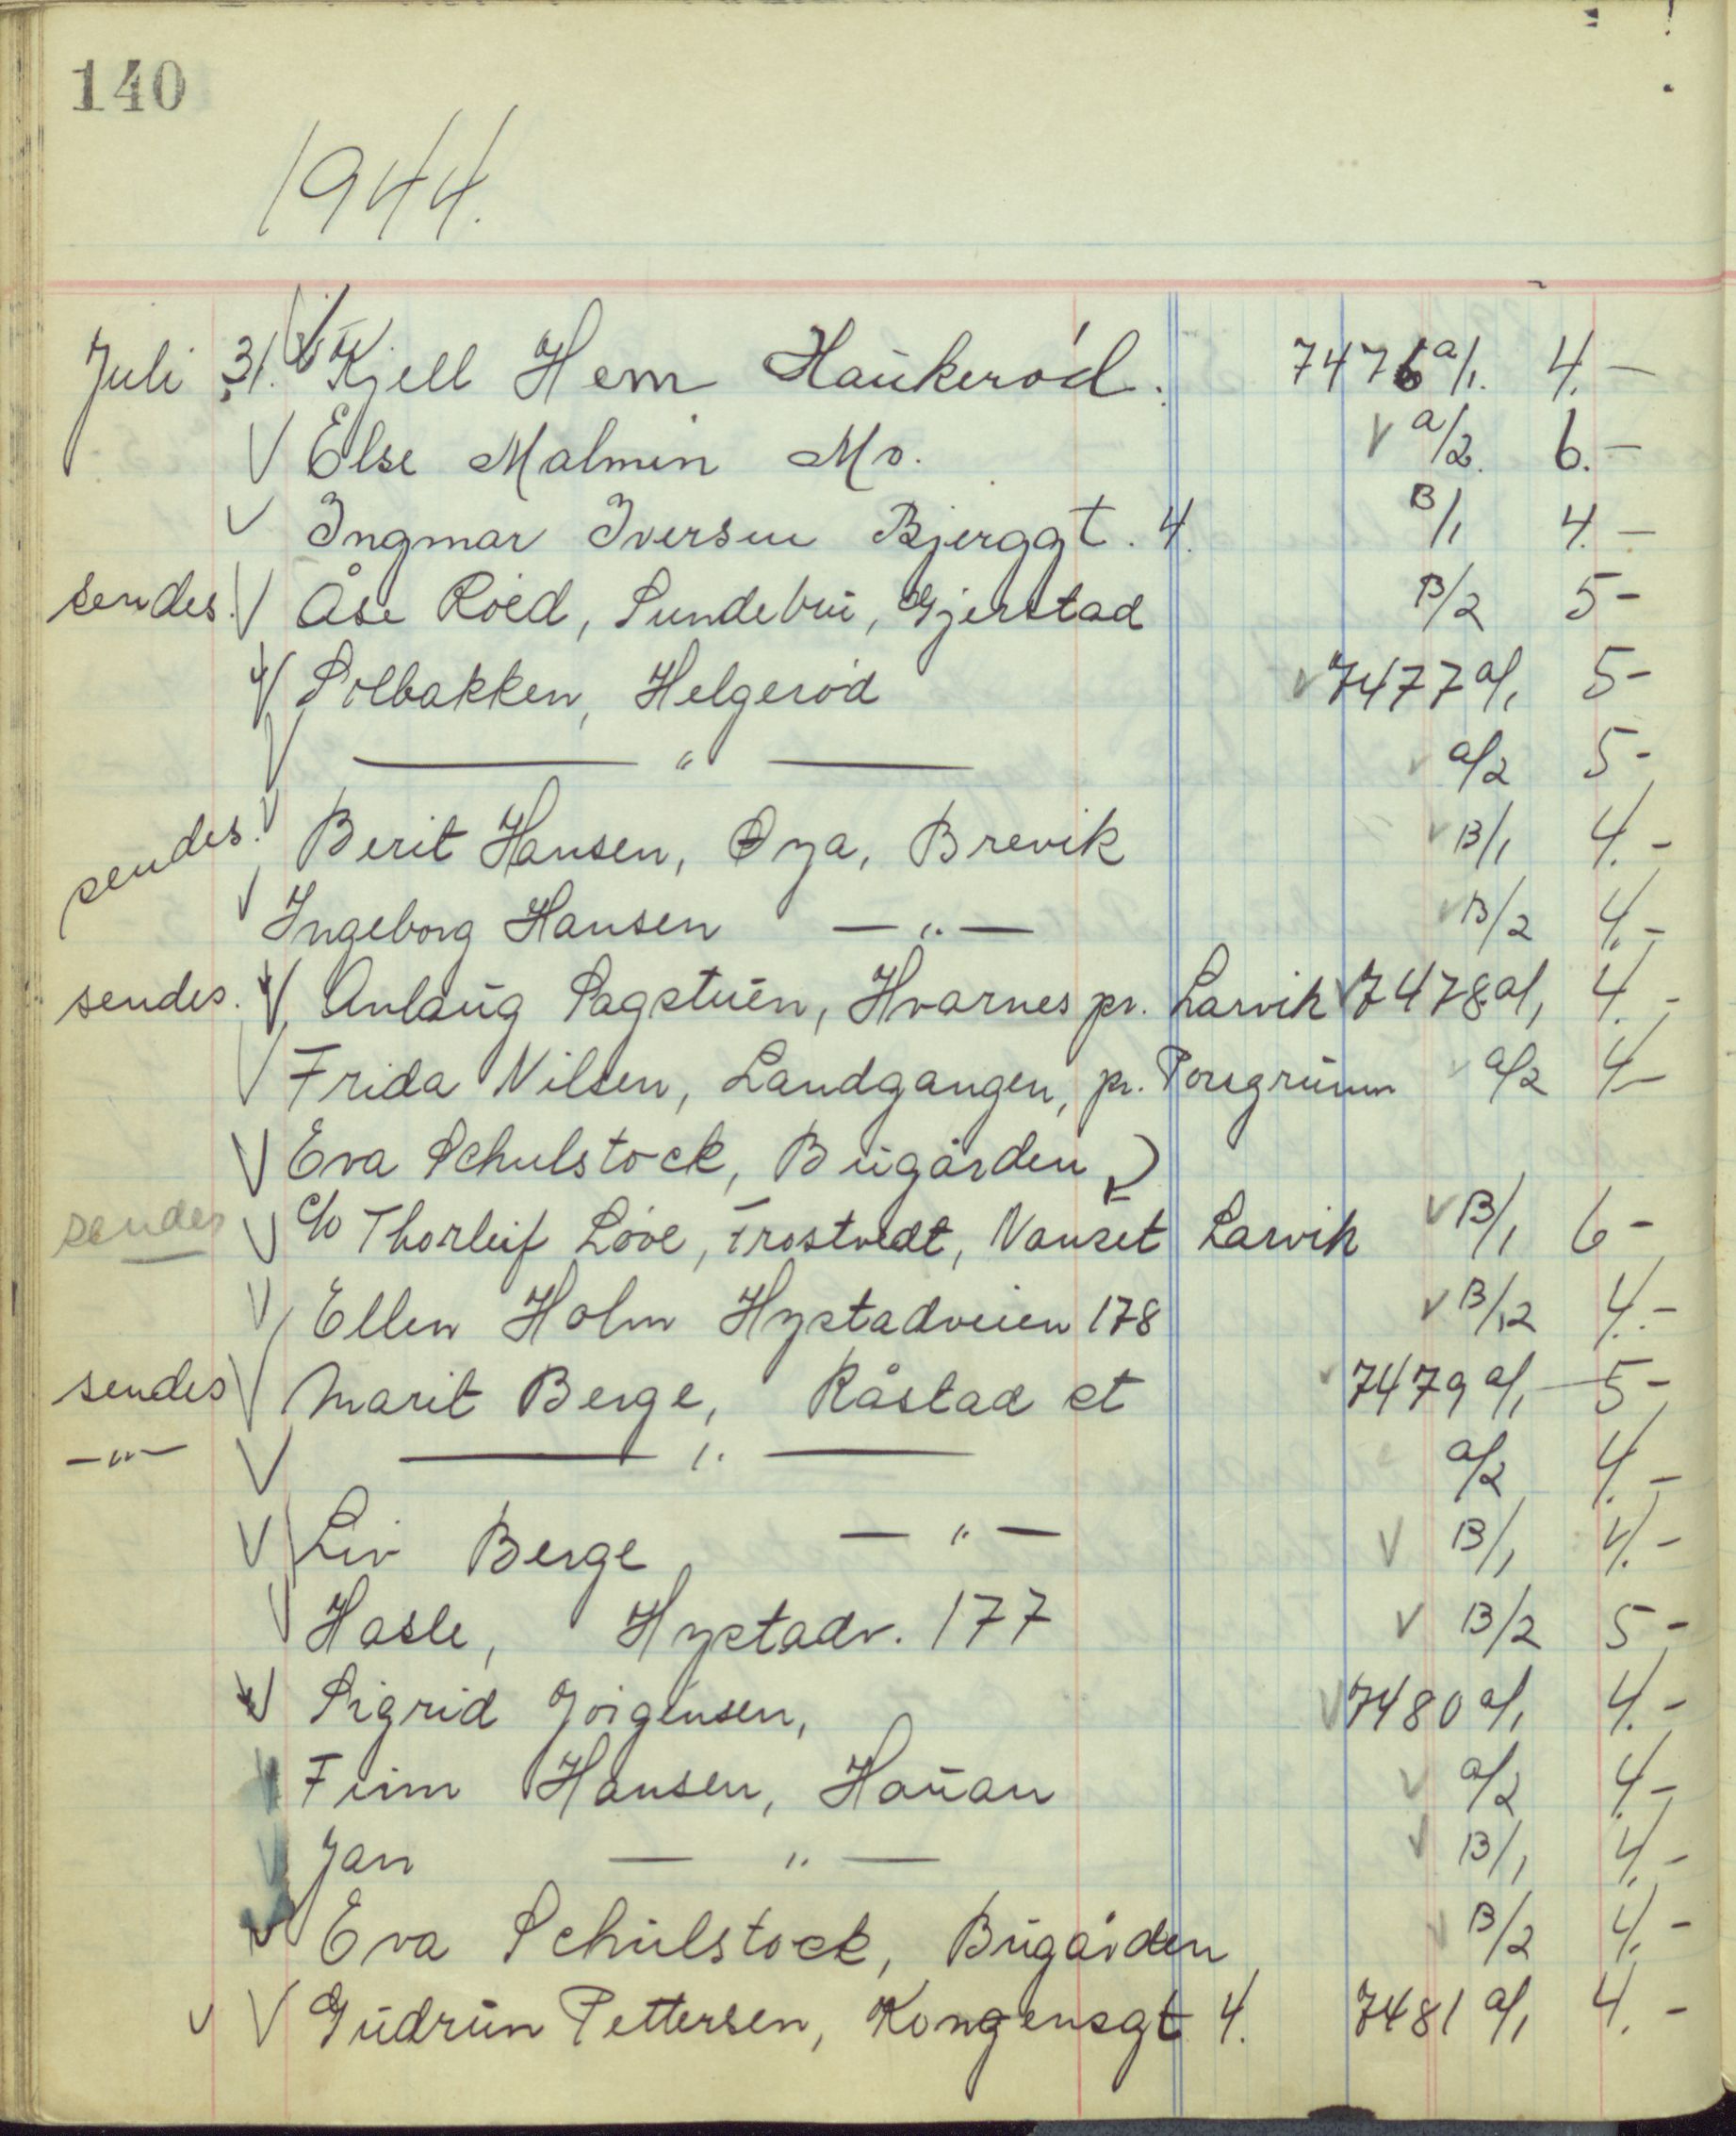 140
1944.
Juli 31. V Kjell Hem Haukerød. 7476 a/1. 4.—
V Else Malmin Mo. V a/2. 6.—
V Ingmar Iversen Bjerggt. 4. B/1 4.—
sendes. V Åse Röed, Sundebru, Gjerstad B/2 5-
V Solbakken, Helgerød V 7477 a/1 5-
V — " — V a/2 5-
sendes. V Berit Hansen, Øya, Brevik V B/1 4.-
V Ingeborg Hansen — " — V B/2 4.-
sendes. V Anlaug Sagstuen, Hvarnes pr. Larvik V 7478 a/1 4.-
V Frida Nilsen, Landgangen, pr. Porsgrunn V a/2 4-
V Eva Schulstock, Bugården
sendes V c/o Thorleif Löve, Trostvedt, Nanset Larvik V B/1 6-
V Ellen Holm Hystadveien 178 V B/2 4.-
sendes V Marit Berge, Råstad st V 7479 a/1 5-
—"— V — " — a/2 4.-
V Liv Berge — " — V B/1 4.-
V Hasle, Hystadv. 177 V B/2 5-
V Sigrid Jörgensen, V 7480 a/1 4.-
V Finn Hansen, Hauan V a/2 4.-
V Jan — " — V B/1 4.-
V Eva Schulstock, Bugården V B/2 4.-
V V Gudrun Pettersen, Kongensgt. 4. 7481 a/1 4.-